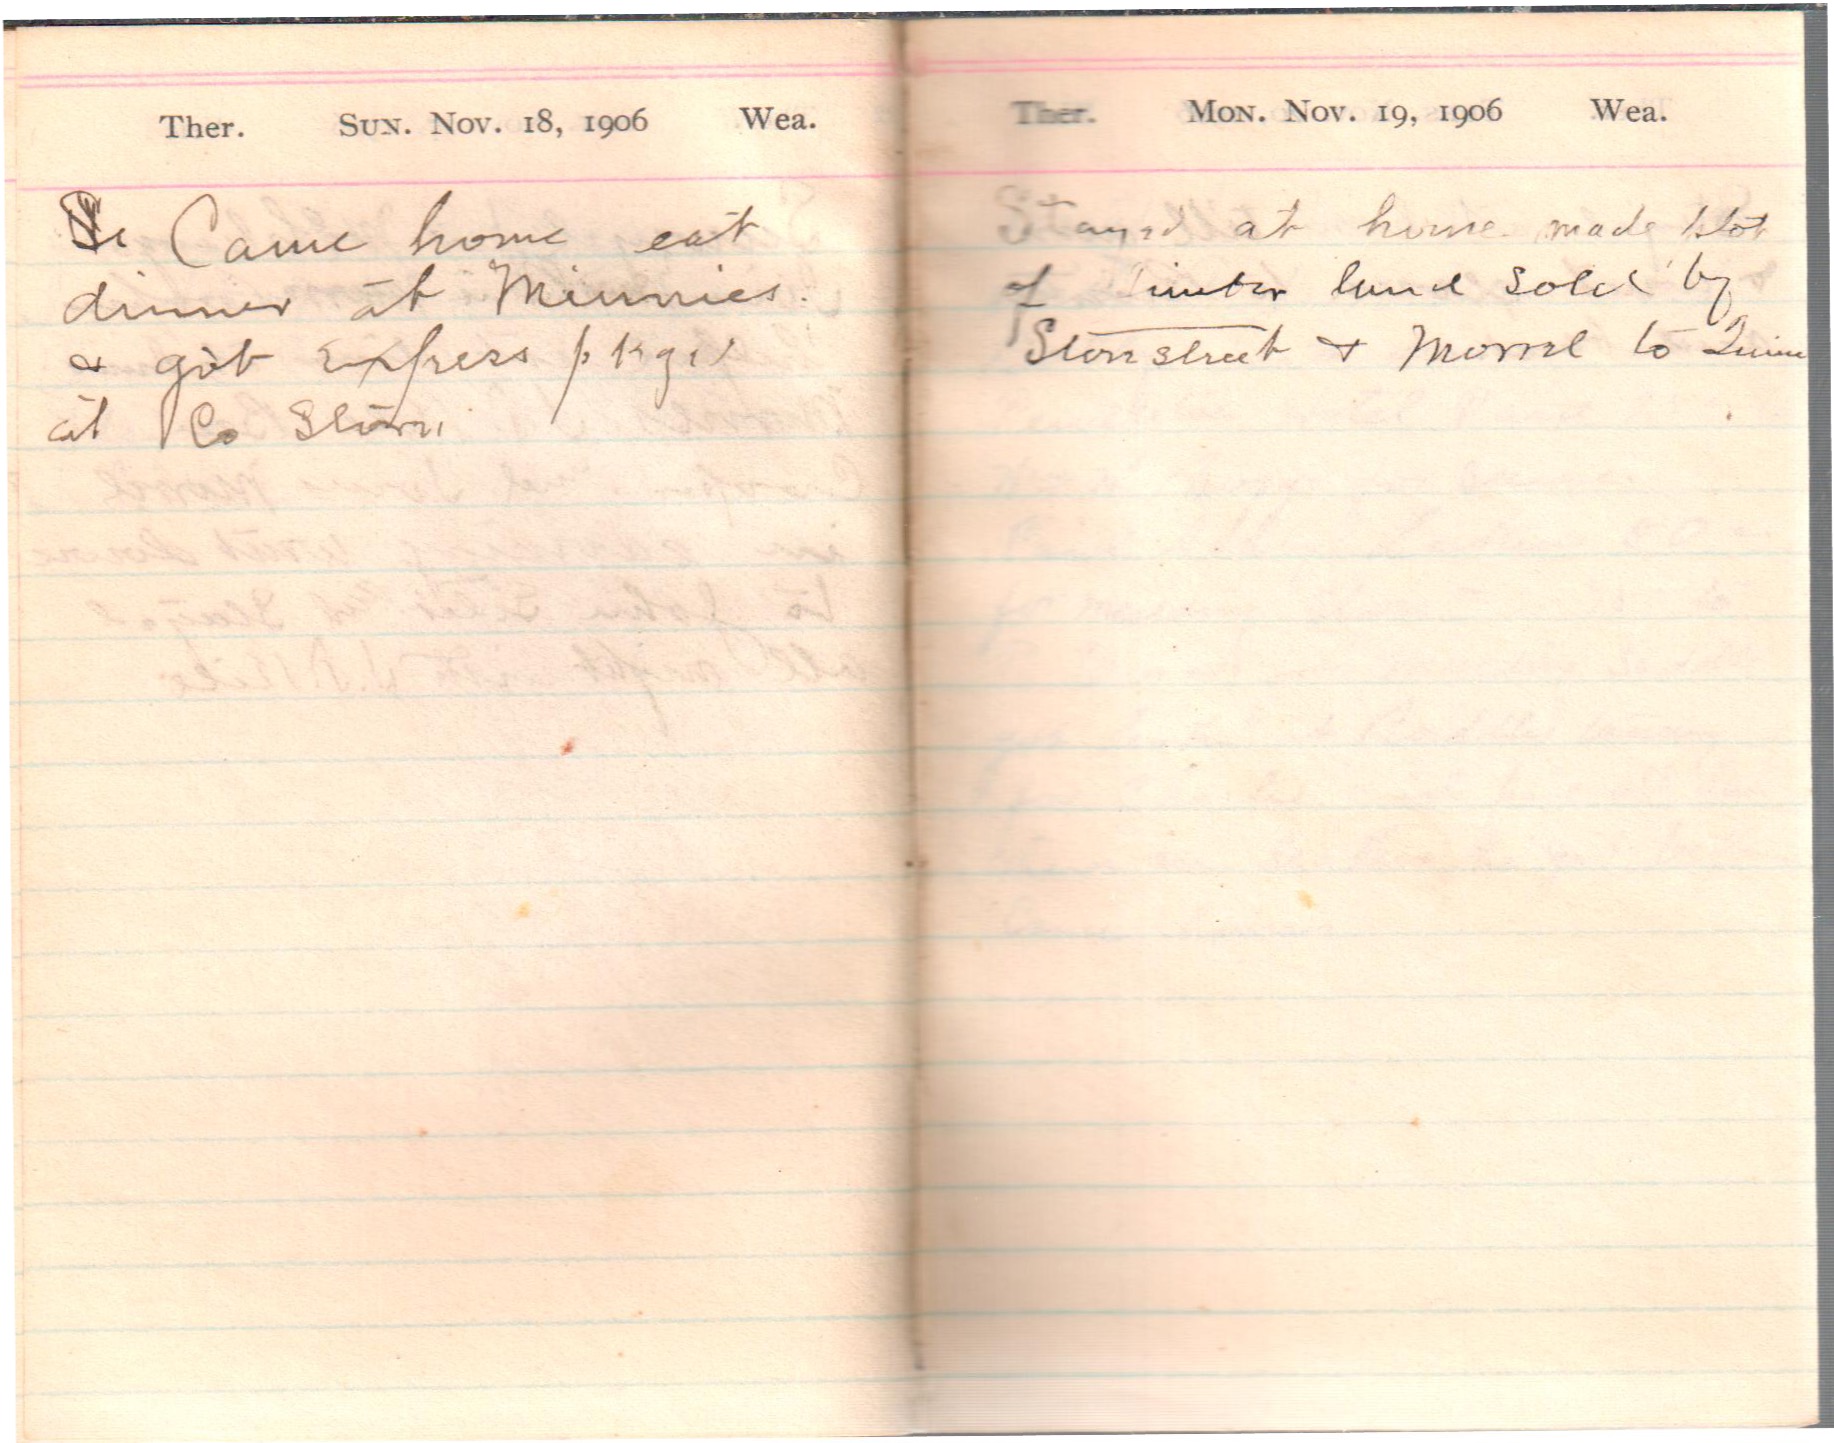 Ther. Sun. Nov. 18, 1906 Wea.
Came home eat
dinner at Minnies.
& got Express pkgs
at Co Store
Ther. Mon. Nov. 19, 1906 Wea.
Stayed at home made plot
of Timber land sold by
Stonstreet & Morrel to